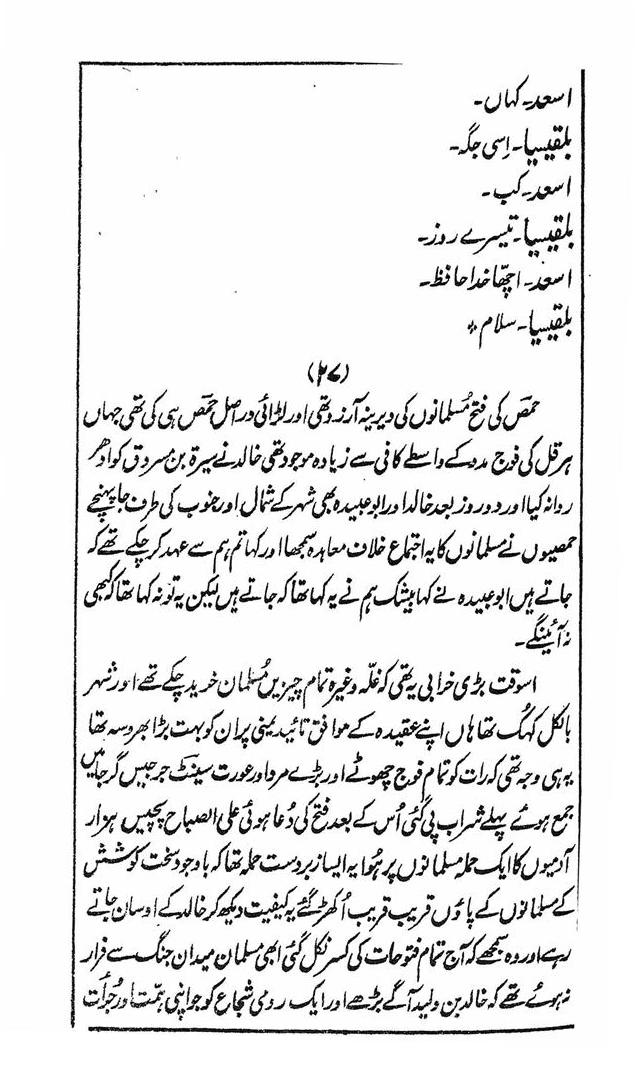 اسعد۔ کہاں۔
بلقیسیا۔ اِسی جگہ۔
اسعد۔ کب۔
بلقیسیا۔ تیسرے روز۔
اسعد۔ اچھا خدا حافظ۔
بلقیسیا۔ سلام ٭
(۲۷)
حمص کی فتح مُسلمانوں کی دیرینہ آرزو تھی اور لڑائی در اصل حمص ہی کی تھی جہاں
ہرقل کی فوج مدد کے واسطے کافی سے زیادہ موجود تھی خالد نے میسرۃ بن مسروق کو ادھر
روانہ کیا اور دو روز بعد خالد اور ابو عبیدہ بھی شہر کے شمال اور جنوب کی طرف جا پہنچے
حمصیوں نے مسلمانوں کا یہ اجتماع خلاف معاہدہ سمجھا اور کہا تم ہم سے عہد کر چکے تھے کہ
جاتے ہیں ابو عبیدہ نے کہا بیشک ہم نے یہ کہا تھا کہ جاتے ہیں لیکن یہ تو نہ کہا تھا کہ کبھی
نہ آئینگے۔
اسوقت بڑی خرابی یہ تھی کہ غلّہ وغیرہ تمام چیزیں مُسلمان خرید چکے تھے اور شہر
بالکل کہُک تھا ہاں اپنے عقیدہ کے موافق تائید یمنی پر ان کو بہت بڑا بھروسہ تھا
یہ ہی وجہ تھی کہ رات کو تمام فوج چھوٹے اور بڑے مرد اور عورت سینٹ جرجیس گرجا میں
جمع ہوئے پہلے شراب پی گئی اُس کے بعد فتح کی دُعا ہوئی علی الصباح پچیس ہزار
آدمیوں کا ایک حملہ مسلمانوں پر ہُوا یہ ایسا زبردست حملہ تھا کہ باوجود سخت کوشش
کے مسلمانوں کے پاؤں قریب قریب اُکھڑ گئے یہ کیفیت دیکھ کر خالد کے اوسان جاتے
رہے اور وہ سمجھے کہ آج تمام فتوحات کی کسر نکل گئی ابھی مسلمان میدان جنگ سے فرار
نہ ہوئے تھے کہ خالد بن ولید آگے بڑھے اور ایک رومی شجاع کو جو اپنی ہمّت اور جُرأت